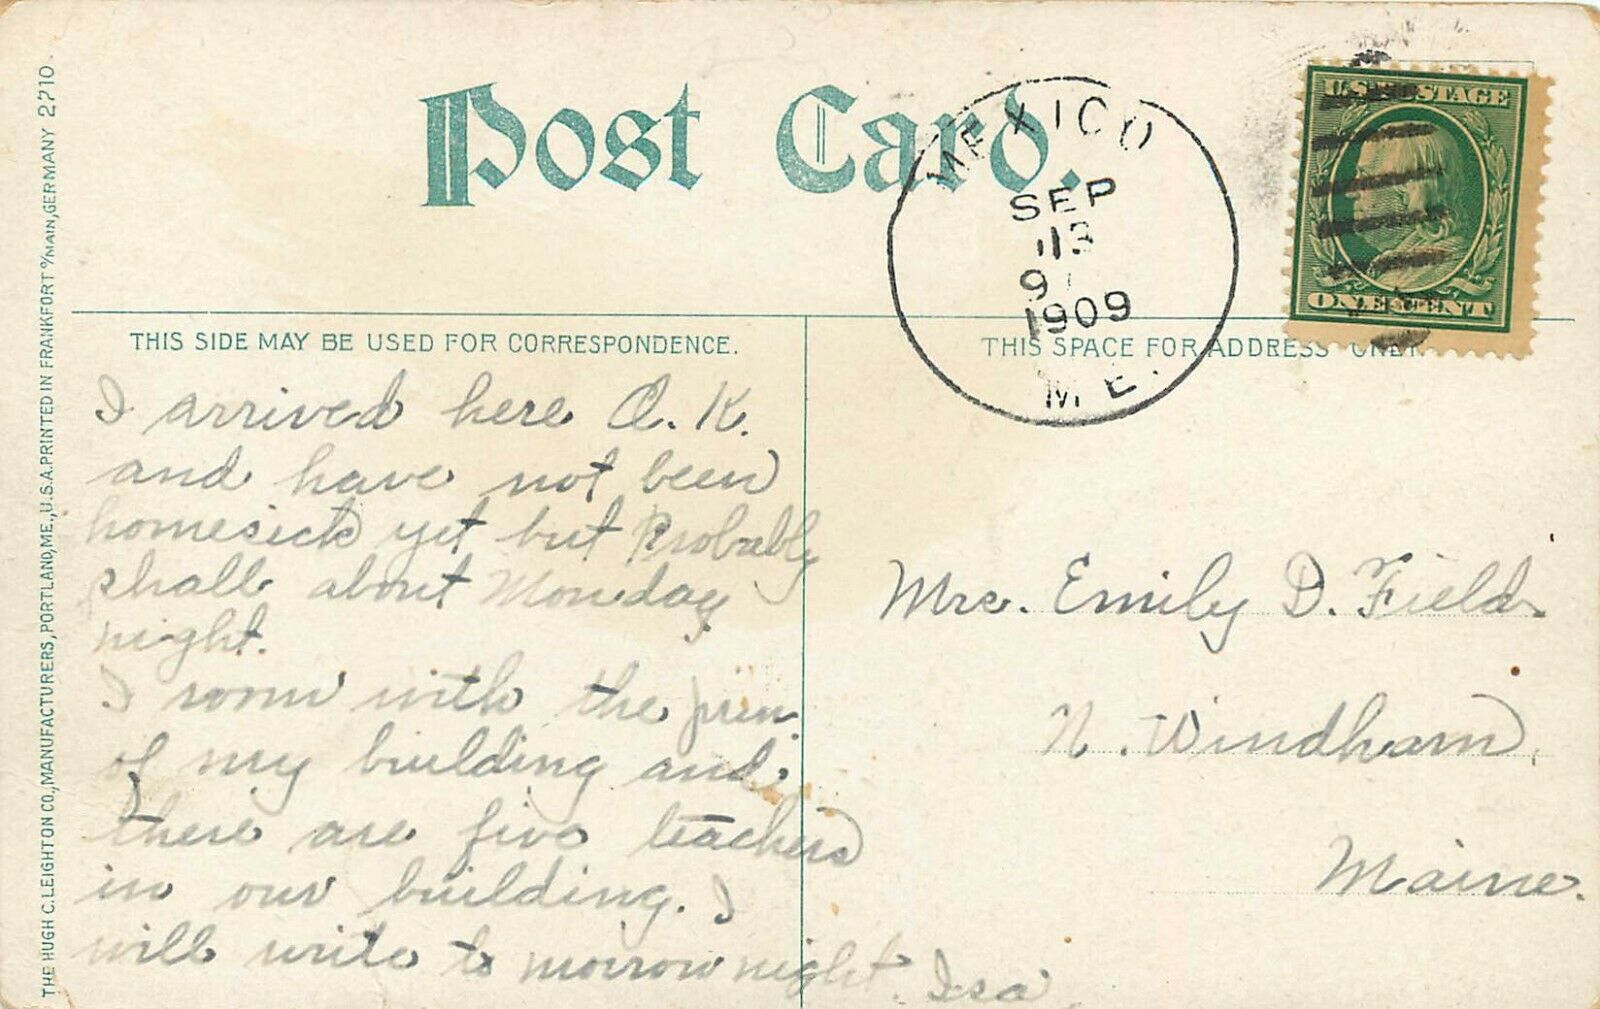 Post Card.
MEXICO
SEP
13
9
1909
ME.
U.S. POSTAGE
ONE CENT
THE HUGH C. LEIGHTON CO., MANUFACTURERS, PORTLAND, ME., U.S.A. PRINTED IN FRANKFORT o/MAIN, GERMANY 2710.
THIS SIDE MAY BE USED FOR CORRESPONDENCE.
I arrived here O.K.
and have not been
homesick yet but Probably
shall about Monday
night.
I room with the prin.
of my building and
there are five teachers
in our building. I
will write to morrow night. Isa
THIS SPACE FOR ADDRESS ONLY.
Mrs. Emily D. Field
N. Windham,
Maine.